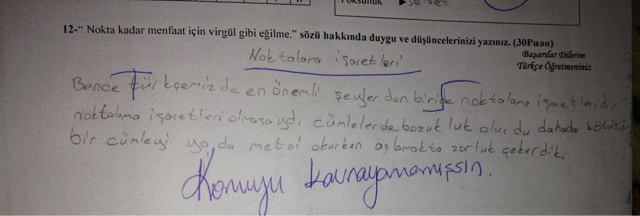 12-" Nokta kadar menfaat için virgül gibi eğilme." sözü hakkında duygu ve düşüncelerinizi yazınız. (30Puan)
Başarılar Dilerim
Türkçe Öğretmeniniz
Noktalama işaretleri
Bence türkçemizde en önemli şeyler den biride noktalama işaretleridir
noktalama işaretleri olmasaydı cümlelerde bozuk luk olur du dahada kötüsü
bir cümleyi ya da metni okurken anlamakta zorluk çekerdik.
Konuyu kavrayamamışsın.